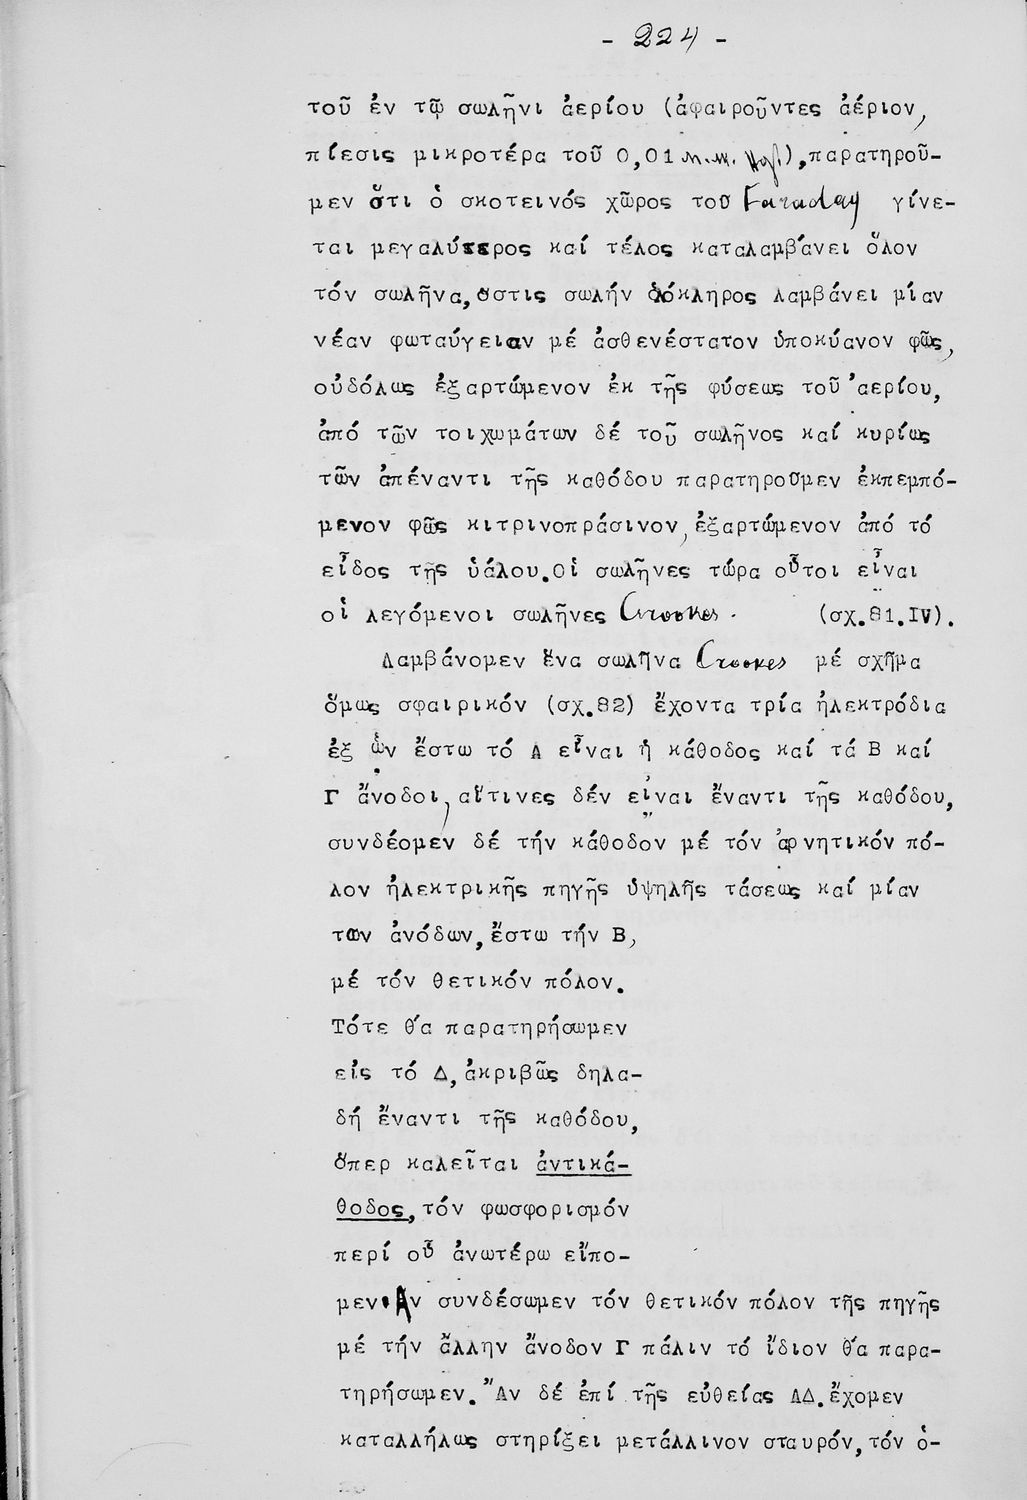 - 224 -
τοῦ ἐν τῷ σωλῆνι ἀερίου (ἀφαιροῦντες ἀέριον,
πίεσις μικροτέρα τοῦ 0,01 m.m. Hg.), παρατηροῦ-
μεν ὅτι ὁ σκοτεινός χῶρος τοῦ Faraday γίνε-
ται μεγαλύτερος καί τέλος καταλαμβάνει ὅλον
τόν σωλῆνα, ὅστις σωλήν ὁλόκληρος λαμβάνει μίαν
νέαν φωταύγειαν μέ ἀσθενέστατον ὑποκύανον φῶς,
οὐδόλως ἐξαρτώμενον ἐκ τῆς φύσεως τοῦ ἀερίου,
ἀπό τῶν τοιχωμάτων δέ τοῦ σωλῆνος καί κυρίως
τῶν ἀπέναντι τῆς καθόδου παρατηροῦμεν ἐκπεμπό-
μενον φῶς κιτρινοπράσινον, ἐξαρτώμενον ἀπό τό
εἶδος τῆς ὑάλου. Οἱ σωλῆνες τώρα οὗτοι εἶναι
οἱ λεγόμενοι σωλῆνες Crookes. (σχ.81.IV).
Λαμβάνομεν ἕνα σωλῆνα Crookes μέ σχῆμα
ὅμως σφαιρικόν (σχ.82) ἔχοντα τρία ἠλεκτρόδια
ἐξ ὧν ἔστω τό Α εἶναι ἡ κάθοδος καί τά Β καί
Γ ἄνοδοι, αἵτινες δέν εἶναι ἔναντι τῆς καθόδου,
συνδέομεν δέ τήν κάθοδον μέ τόν ἀρνητικόν πό-
λον ἠλεκτρικῆς πηγῆς ὑψηλῆς τάσεως καί μίαν
των ἀνόδων, ἔστω τήν Β,
μέ τόν θετικόν πόλον.
Τότε θά παρατηρήσωμεν
εἰς τό Δ, ἀκριβῶς δηλα-
δή ἔναντι τῆς καθόδου,
ὅπερ καλεῖται ἀντικά-
θοδος, τόν φωσφορισμόν
περί οὗ ἀνωτέρω εἴπο-
μεν. Ἄν συνδέσωμεν τόν θετικόν πόλον τῆς πηγῆς
μέ τήν ἄλλην ἄνοδον Γ πάλιν τό ἴδιον θά παρα-
τηρήσωμεν. Ἄν δέ ἐπί τῆς εὐθείας ΑΔ. ἔχομεν
καταλλήλως στηρίξει μετάλλινον σταυρόν, τόν ὁ-